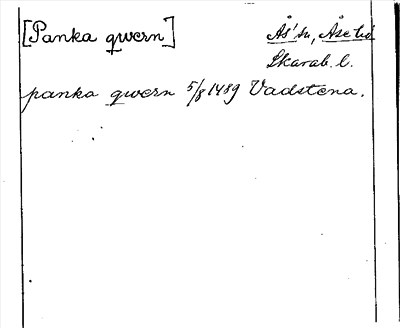 [Panka qwern]
Ås' sn, Åse hd
Skarab. l.
panka qwern 5/8 1489 Vadstena.